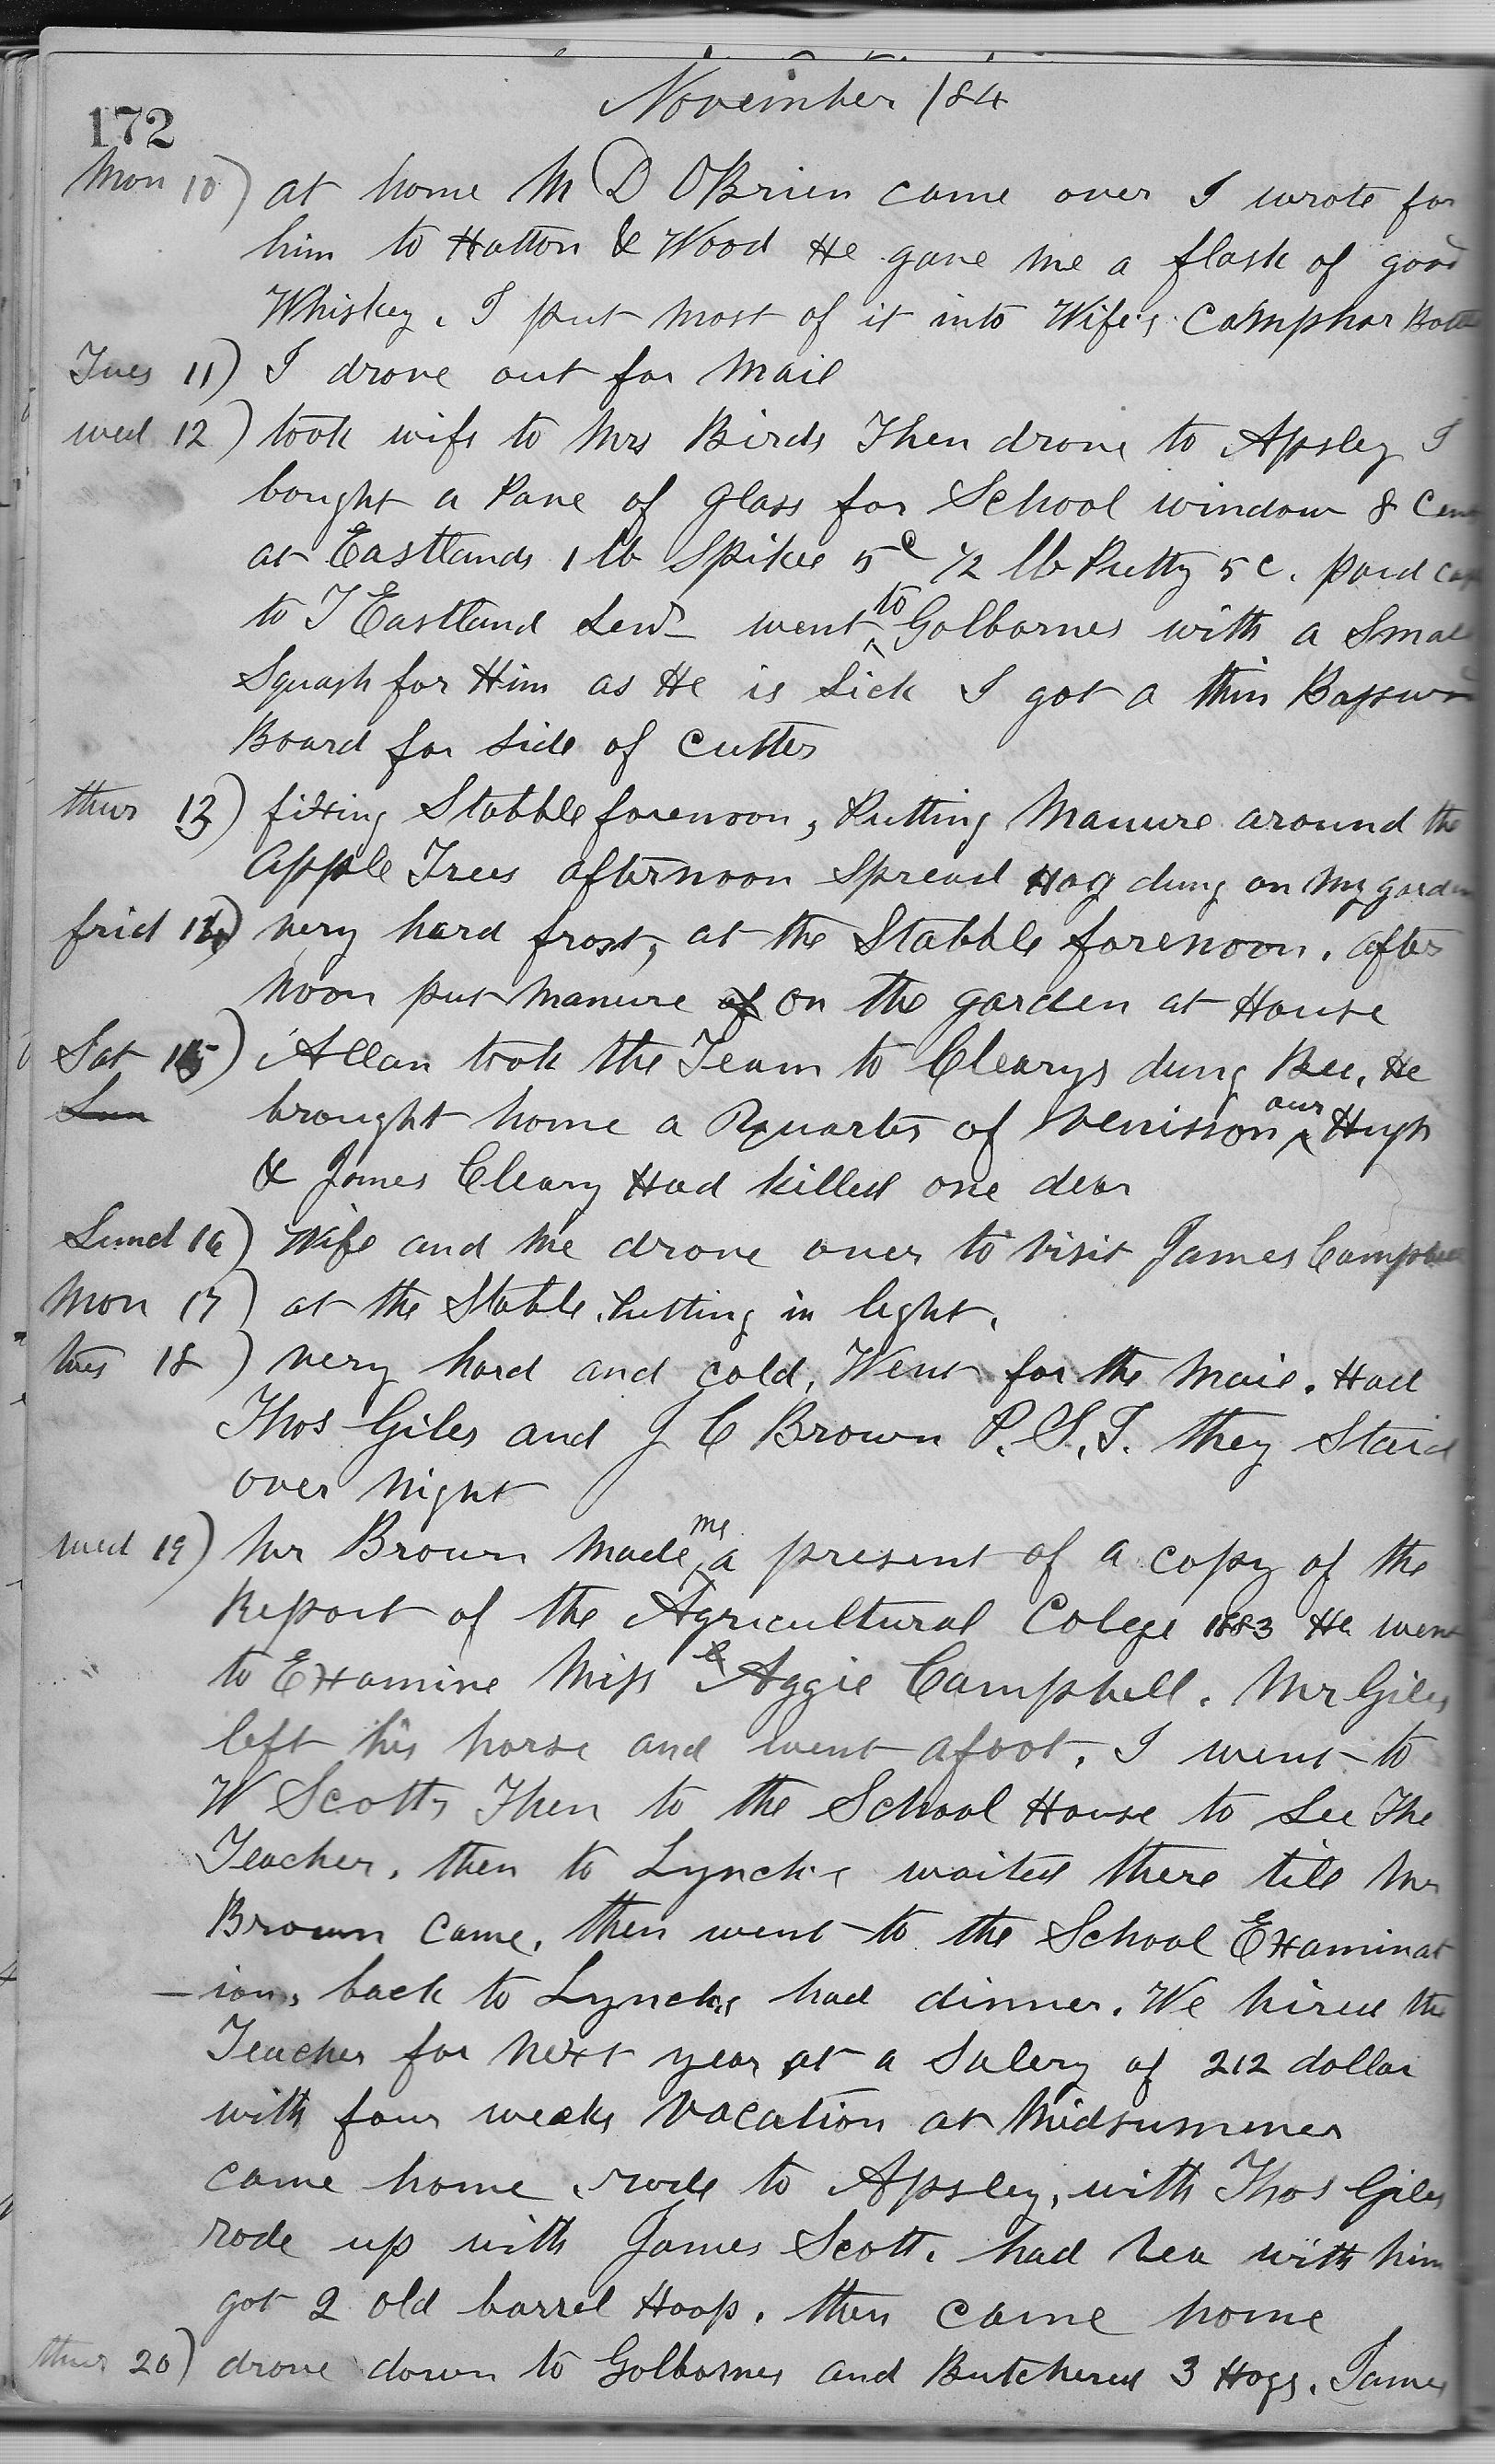 November /84
172
Mon 10) at home M D OBrien came over I wrote for
him to Hatton & Wood He gave me a flask of good
Whiskey. I put most of it into Wife's Camphor Bottle
Tues 11) I drove out for Mail
wed 12) took wife to Mrs Birds Then drove to Apsley I
bought a Pane of glass for School window 8 Cents
at Eastlands 1 lb Spikes 5c 1/2 lb Putty 5c. paid cash
to T Eastland Senr went to Golbornes with a Small
Squash for Him as He is Sick I got a thin Basswood
Board for side of Cutter
thur 13) fixing Stabble forenoon, Putting Manure around the
apple Trees afternoon Spread Hog dung on my garden
frid 14) very hard frost, at the Stabble forenoon. after
noon put manure of on the garden at House
Sat 15) Allan took the Team to Clearys dung Bee. He
Sun brought home a Rquarter of Venisson our Hugh
& James Cleary Had killed one dear
Sund 16) Wife and me drove over to visit James Campbell
Mon 17) at the Stable. Putting in light.
tues 18) very hard and cold, Went for the Mail. Had
Thos Giles and J C Brown P.S.I. they Staid
over night
wed 19) Mr Brown Made me a present of a copy of the
Report of the Agricultural Colege 1883 He went
to Examine Miss & Aggie Campbell. Mr Giles
left his horse and went afoot. I went to
W Scotts Then to the School House to See The
Teacher. then to Lynch's waited there till Mr
Brown came, then went to the School Examinat
-ion, back to Lynchs had dinner. We hired the
Teacher for next year at a Salery of 212 dollar
with four weeks Vacation at Midsummer
came home. rode to Apsley, with Thos Giles
rode up with James Scott. had tea with him
got 2 old barrel Hoops. then came home
thur 20) drove down to Golbornes and Butchered 3 Hogs. James